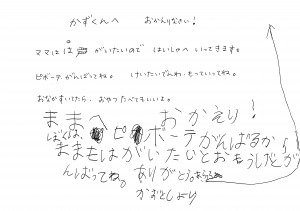 かずくんへ　おかえりなさい！
ママは は が いたいので はいしゃへ いってきます。
ピボーテ がんばってね。 けいたいでんわ、もっていってね。
おなかすいてたら、おやつ たべてもいいよ。
ままへ　おかえり！
ぼくは、ピボーテがんばるから
ままもはがいたいとおもうけどが
んばってね。ありがとう
かずとしより